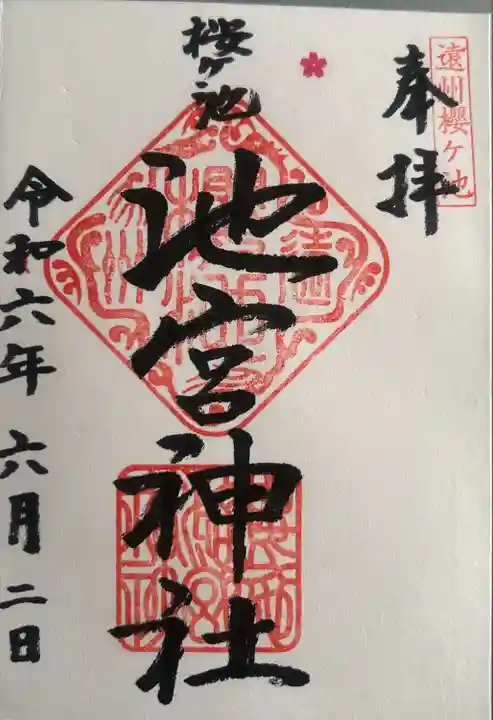 遠州櫻ヶ池
奉拝
桜ヶ池
池宮神社
令和六年 六月 二日